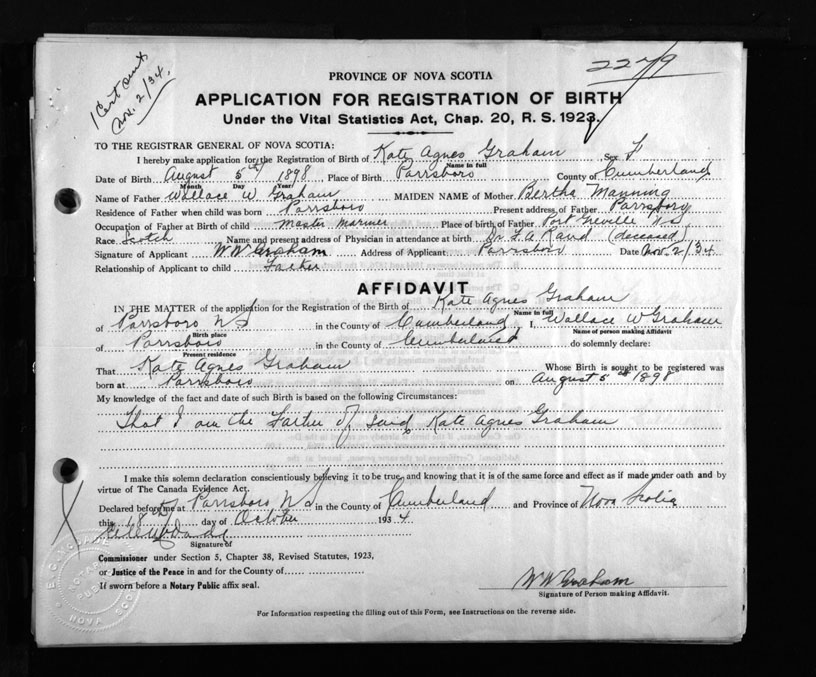 1 Cert sent
Nov. 2/34.
2279
PROVINCE OF NOVA SCOTIA
APPLICATION FOR REGISTRATION OF BIRTH
Under the Vital Statistics Act, Chap. 20, R. S. 1923.
TO THE REGISTRAR GENERAL OF NOVA SCOTIA:
I hereby make application for the Registration of Birth of Kate Agnes Graham Sex F
Name in full
Date of Birth August 5th 1898 Place of Birth Parrsboro County of Cumberland
Month Day Year
Name of Father Wallace W Graham MAIDEN NAME of Mother Bertha Manning
Residence of Father when child was born Parrsboro Present address of Father Parrsboro
Occupation of Father at Birth of child Master Mariner Place of birth of Father Port Greville N.S
Race Scotch Name and present address of Physician in attendance at birth Dr F. A Rand (deceased)
Signature of Applicant W W Graham Address of Applicant Parrsboro Date Nov. 2/34
Relationship of Applicant to child Father
AFFIDAVIT
IN THE MATTER of the application for Registration of the Birth of Kate Agnes Graham
Name in full
of Parrsboro N S in the County of Cumberland I, Wallace W Graham
Birth place Name of person making Affidavit
of Parrsboro in the County of Cumberland do solemnly declare:
Present residence
That Kate Agnes Graham Whose Birth is sought to be registered was
born at Parrsboro on August 5th 1898
My knowledge of the fact and date of such Birth is based on the following Circumstances:
That I am the Father of Said Kate Agnes Graham
I make this solemn declaration conscientiously believing it to be true, and knowing that it is of the same force and effect as if made under oath and by
virtue of The Canada Evidence Act.
Declared before me at Parrsboro N S in the County of Cumberland and Province of Nova Scotia
this day of October 1934
Signature of
Commissioner under Section 5, Chapter 38, Revised Statutes, 1923,
or Justice of the Peace in and for the County of
If sworn before a Notary Public affix seal.
W W Graham
Signature of Person making Affidavit.
For Information respecting the filling out of this Form, see Instructions on the reverse side.
NOTARY
PUBLIC
NOVA SCOTIA